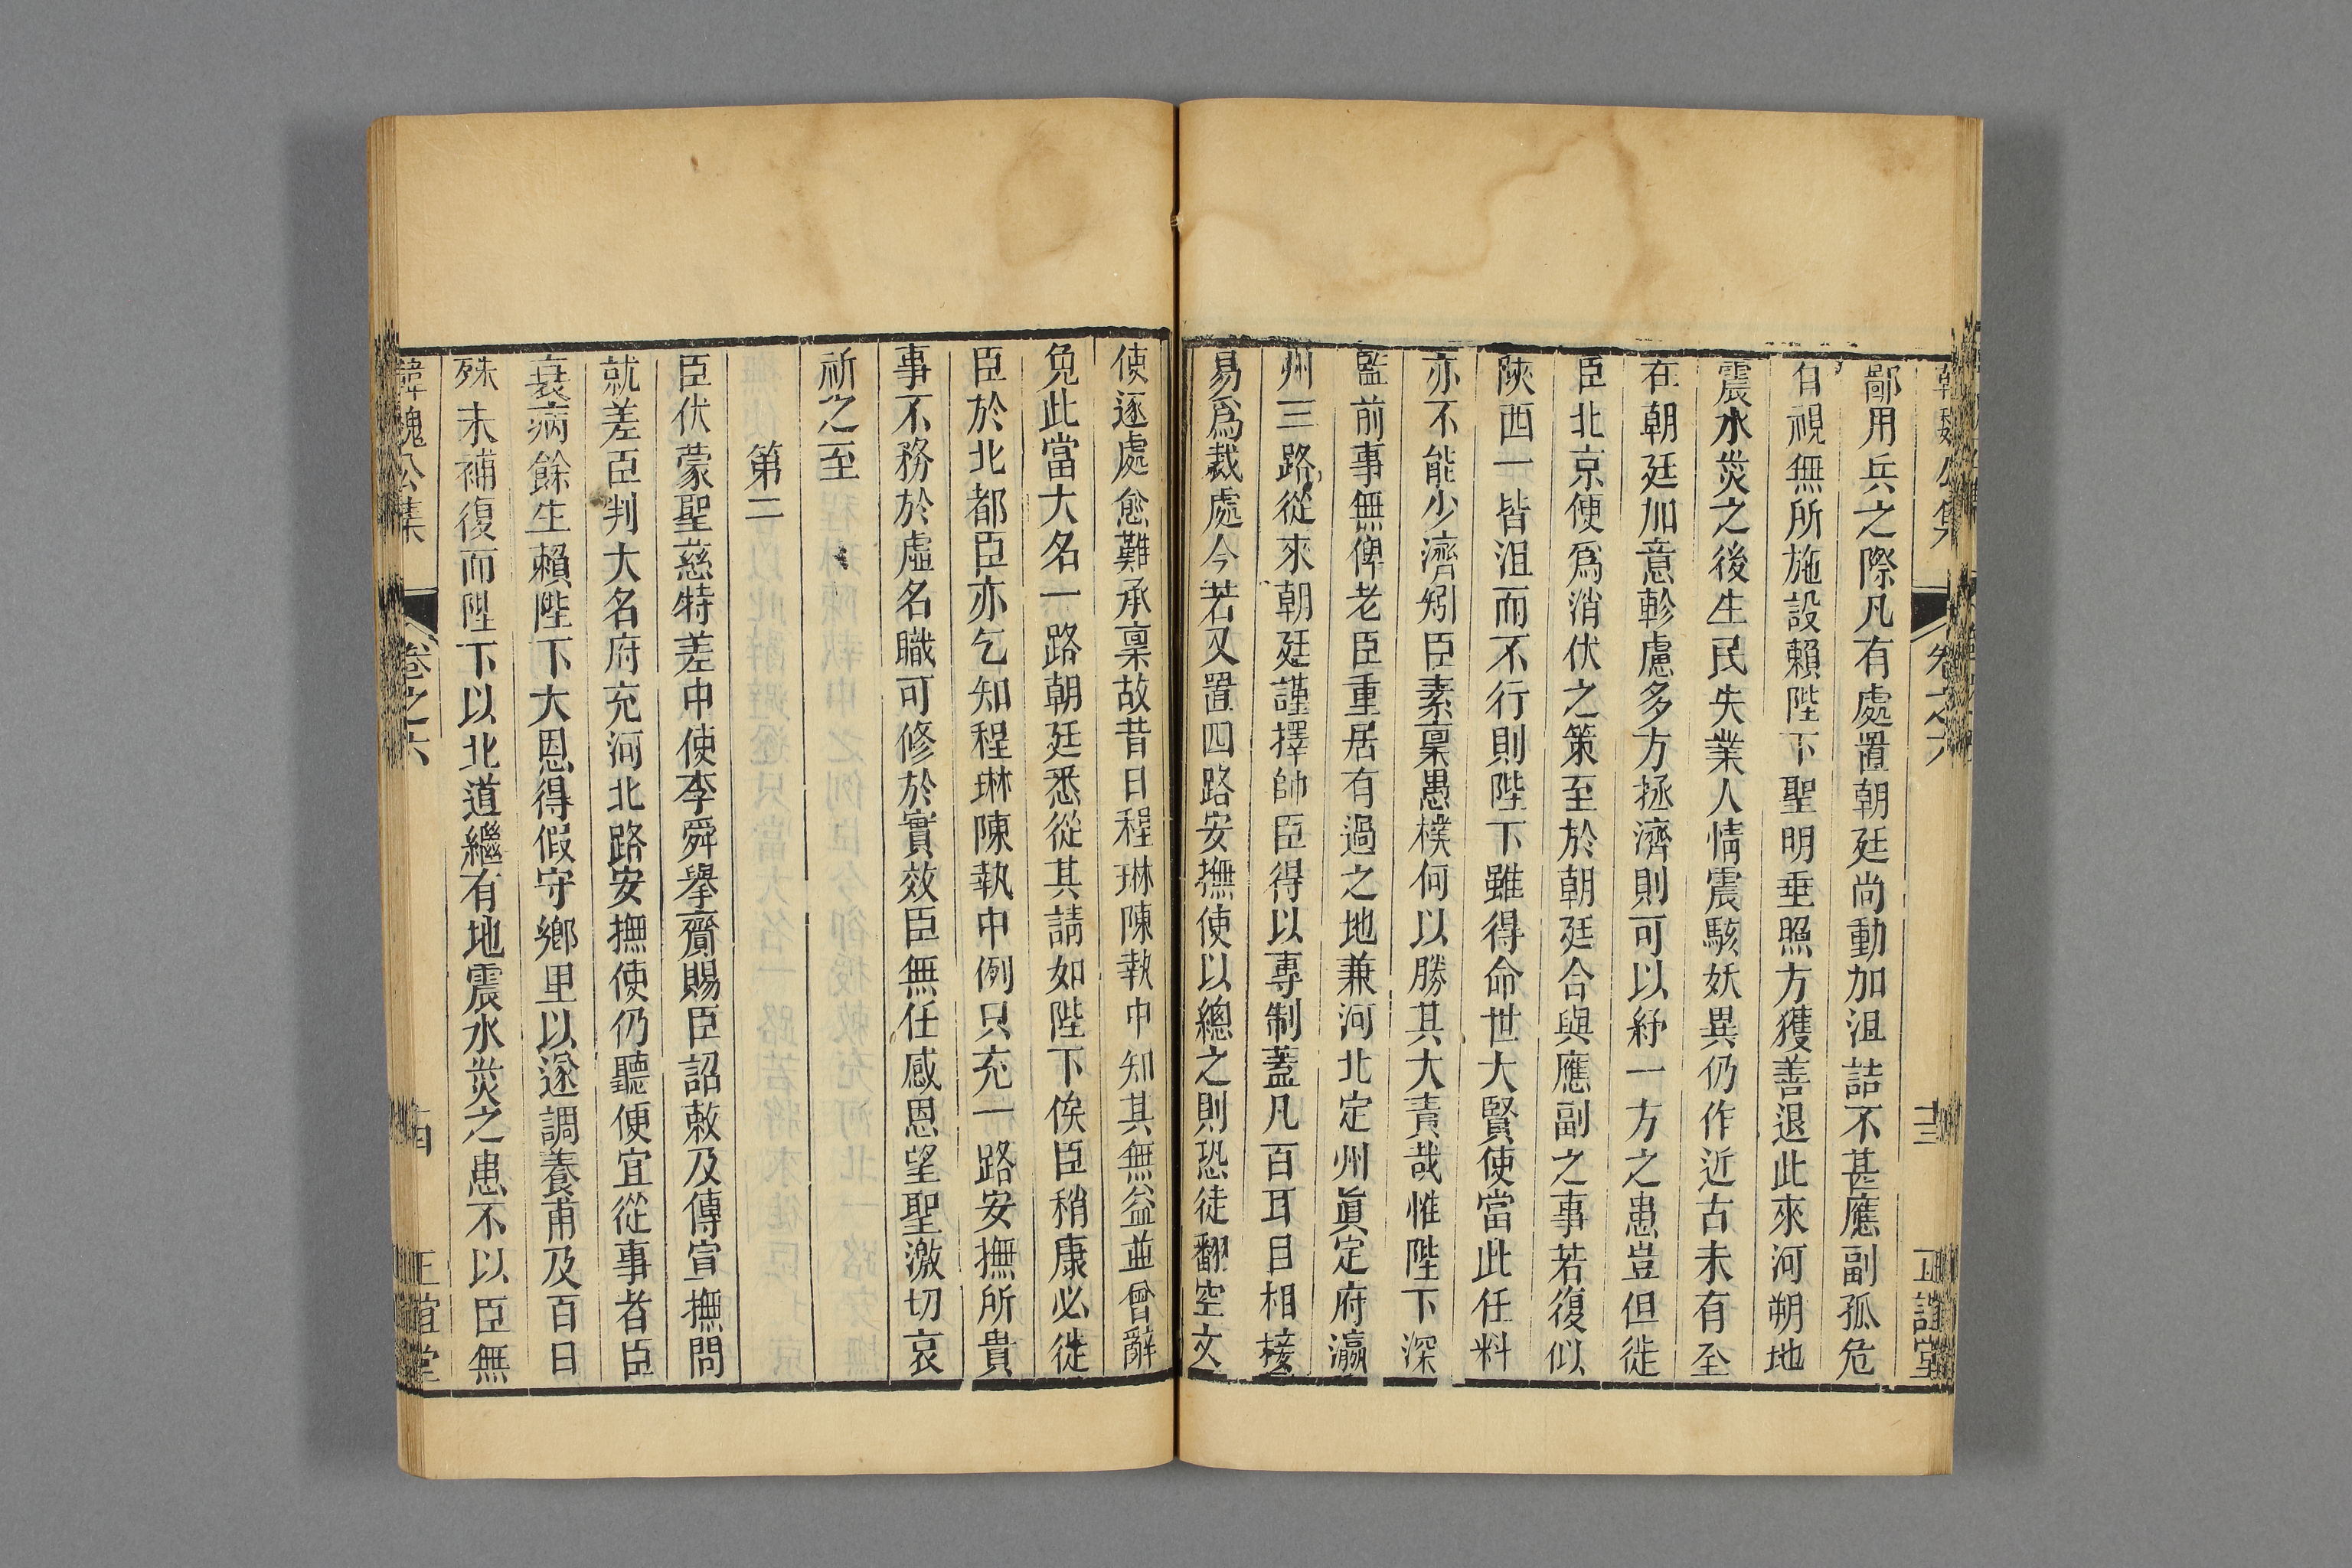 韓魏公集 卷之六 十三 正誼堂
鄙用兵之際凡有處置朝廷尚動加沮詰不甚應副孤危
自視無所施設賴陛下聖明垂照方獲善退此來河朔地
震水災之後生民失業人情震駭妖異仍作近古未有至
在朝廷加意軫慮多方拯濟則可以紓一方之患豈但徙
臣北京便爲消伏之策至於朝廷合與應副之事若復似
陝西一皆沮而不行則陛下雖得命世大賢使當此任料
亦不能少濟矧臣素稟愚樸何以勝其大責哉惟陛下深
監前事無俾老臣重居有過之地兼河北定州眞定府瀛
州三路從來朝廷謹擇帥臣得以專制蓋凡百耳目相接
易爲裁處今若又置四路安撫使以總之則恐徒翻空文
使逐處愈難承稟故昔日程琳陳執中知其無益並曾辭
免此當大名一路朝廷悉從其請如陛下俟臣稍康必徙
臣於北都臣亦乞知程琳陳執中例只充一路安撫所貴
事不務於虛名職可修於實效臣無任感恩望聖激切哀
祈之至
第二
臣伏蒙聖慈特差中使李舜舉齎賜臣詔敕及傳宣撫問
就差臣判大名府充河北路安撫使仍聽便宜從事者臣
衰病餘生賴陛下大恩得假守鄉里以遂調養甫及百日
殊未補復而陛下以北道繼有地震水災之患不以臣無
韓魏公集 卷之六 十四 正誼堂